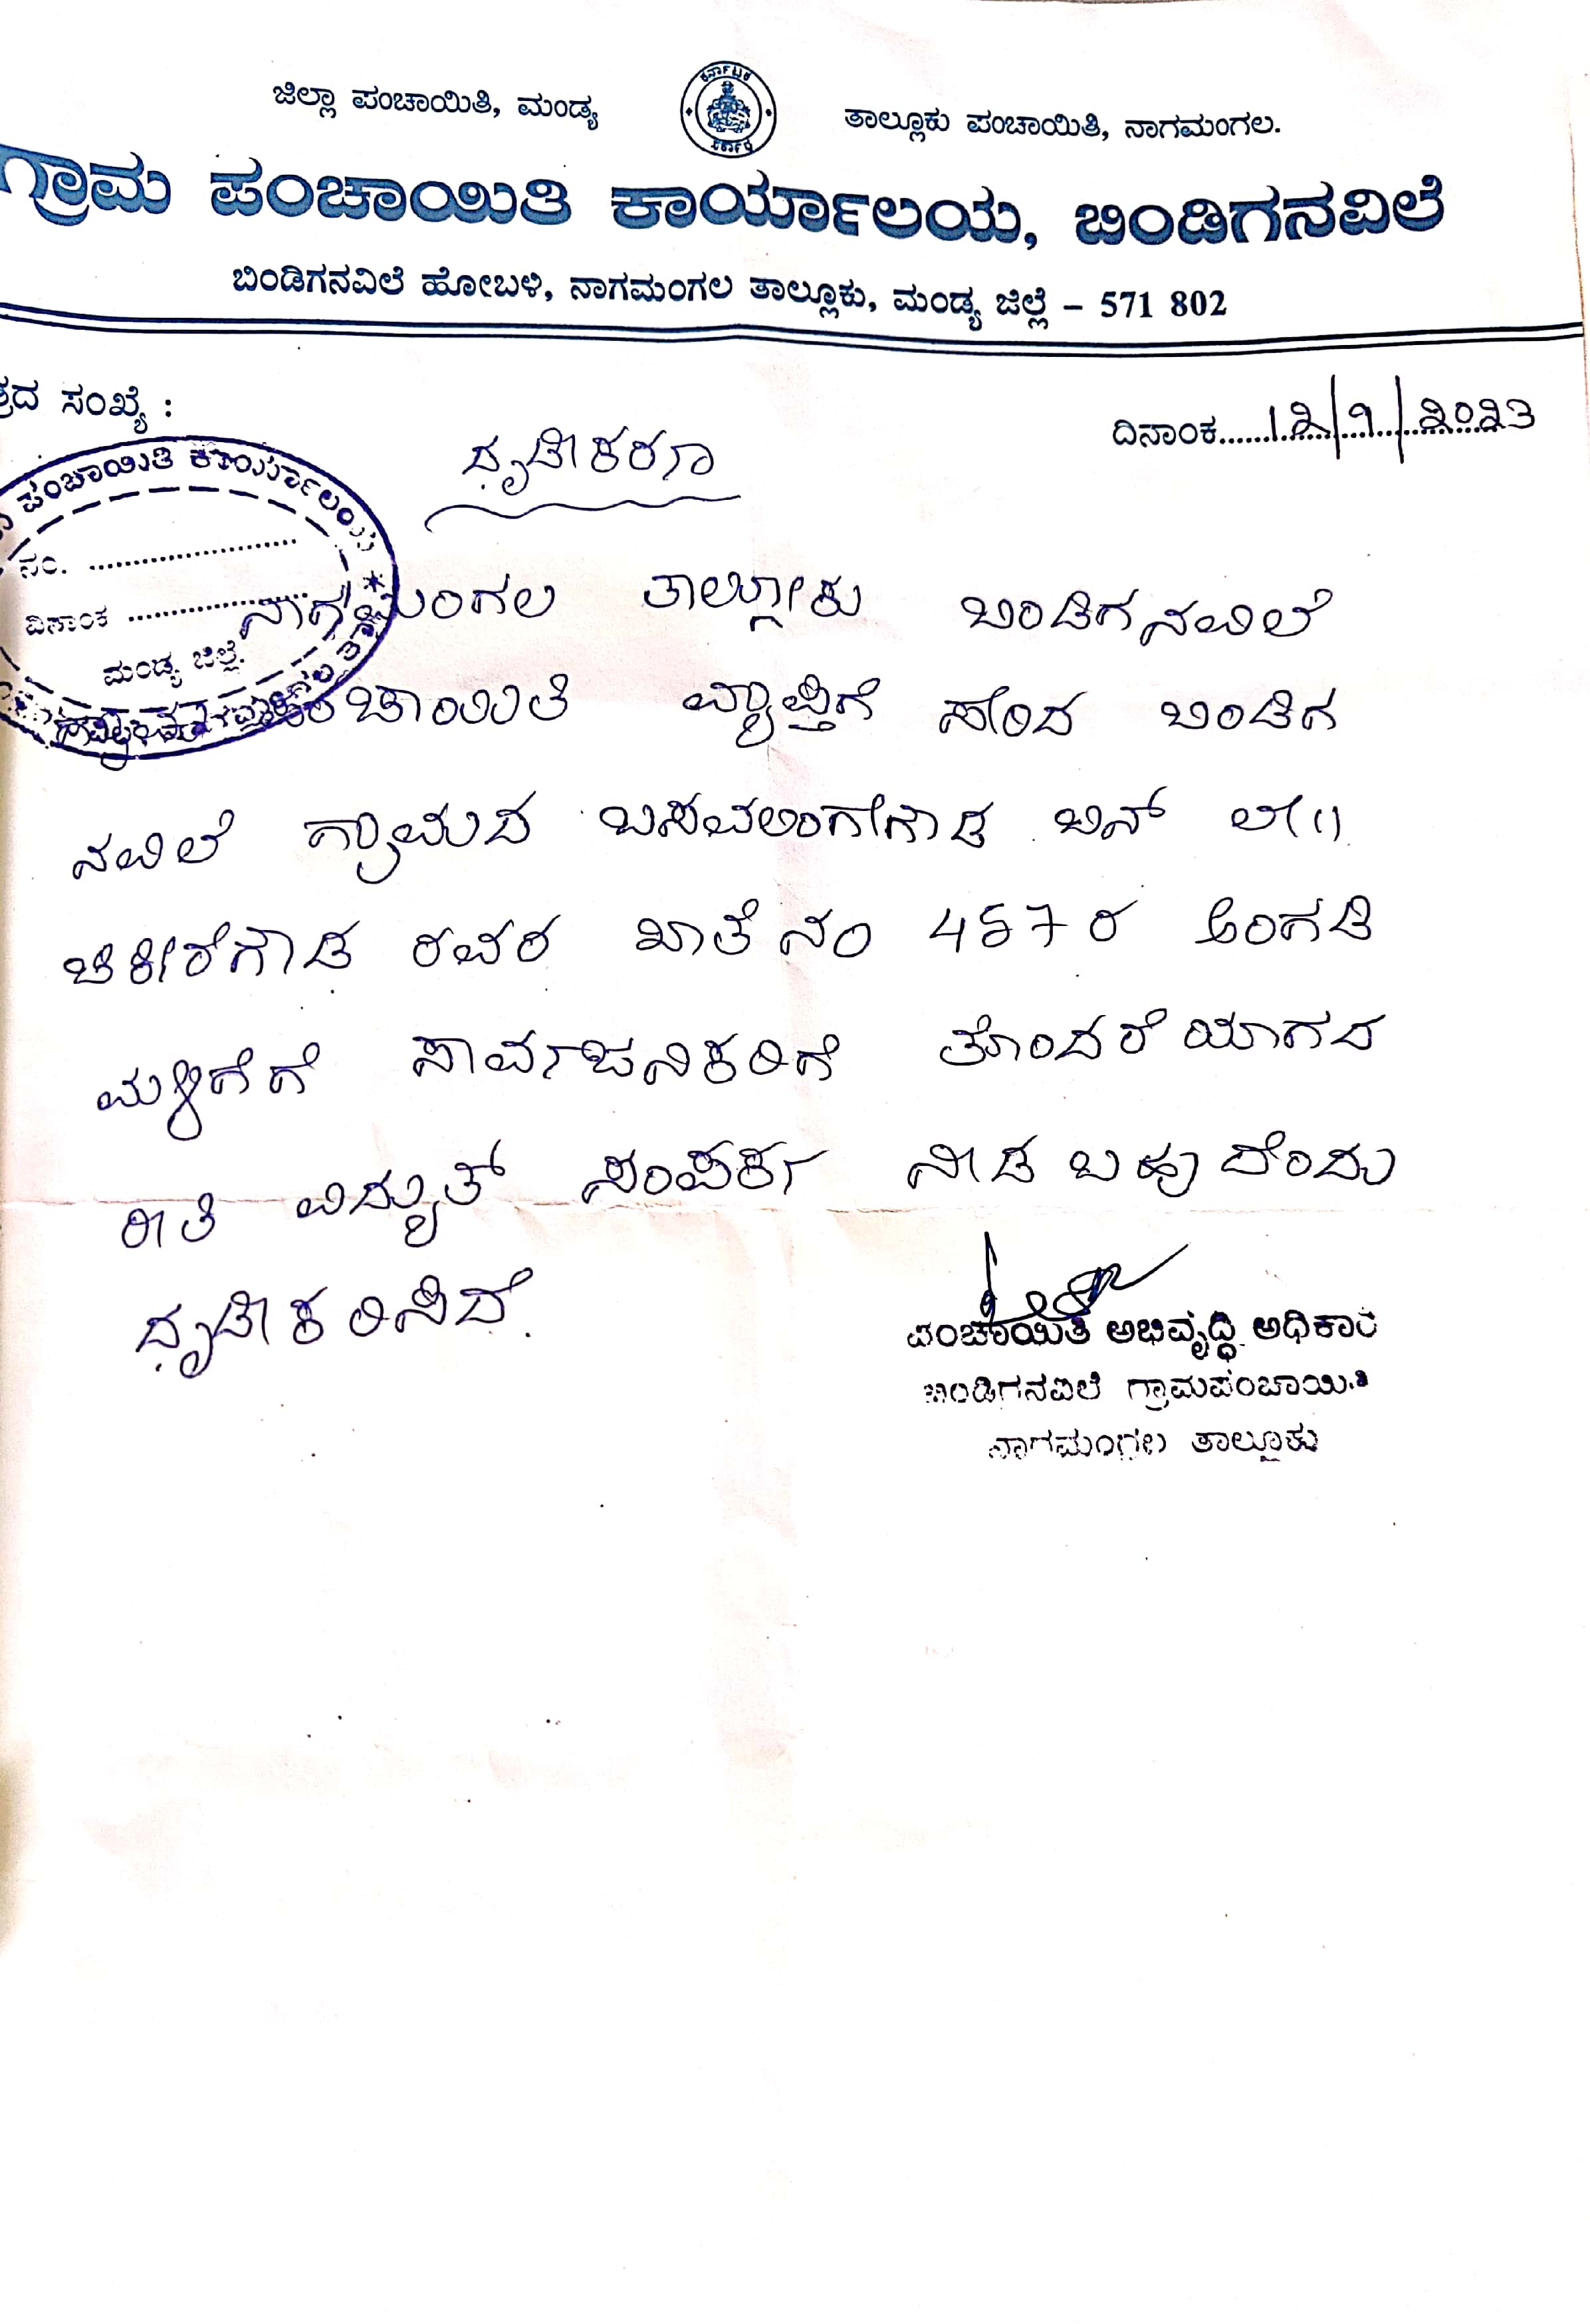 ಜಿಲ್ಲಾ ಪಂಚಾಯಿತಿ, ಮಂಡ್ಯ ತಾಲ್ಲೂಕು ಪಂಚಾಯಿತಿ, ನಾಗಮಂಗಲ.
ಕರ್ನಾಟಕ ಸರ್ಕಾರ
ಗ್ರಾಮ ಪಂಚಾಯಿತಿ ಕಾರ್ಯಾಲಯ, ಬಿಂಡಿಗನವಿಲೆ
ಬಿಂಡಿಗನವಿಲೆ ಹೋಬಳಿ, ನಾಗಮಂಗಲ ತಾಲ್ಲೂಕು, ಮಂಡ್ಯ ಜಿಲ್ಲೆ – 571 802
ಸಂಖ್ಯೆ : ದಿನಾಂಕ......12/9/2023
ದೃಢೀಕರಣ
ಪಂಚಾಯಿತಿ ಕಾರ್ಯಾಲಯ
ನಂ. ........................
ದಿನಾಂಕ ........................
ಮಂಡ್ಯ ಜಿಲ್ಲೆ.
ನಾಗಮಂಗಲ ತಾಲ್ಲೂಕು ಬಿಂಡಿಗನವಿಲೆ
ಪಂಚಾಯಿತಿ ವ್ಯಾಪ್ತಿಗೆ ಸೇರಿದ ಬಿಂಡಿಗ
ನವಿಲೆ ಗ್ರಾಮದ ಬಸವಲಿಂಗೇಗೌಡ ಬಿನ್ ಲೇ||
ರವರ ಖಾತೆ ನಂ 457 ರ ಅಂಗಡಿ
ಮಳಿಗೆಗೆ ಸಾರ್ವಜನಿಕರಿಗೆ ತೊಂದರೆಯಾಗದ
ರೀತಿ ವಿದ್ಯುತ್ ಸಂಪರ್ಕ ನೀಡಬಹುದೆಂದು
ದೃಢೀಕರಿಸಿದೆ.
ಪಂಚಾಯಿತಿ ಅಭಿವೃದ್ಧಿ ಅಧಿಕಾರಿ
ಬಿಂಡಿಗನವಿಲೆ ಗ್ರಾಮಪಂಚಾಯಿತಿ
ನಾಗಮಂಗಲ ತಾಲ್ಲೂಕು